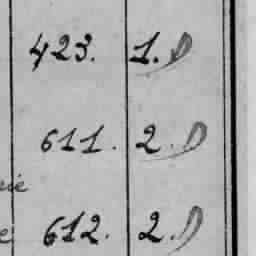 423. 1. D
611. 2. D
612. 2. D